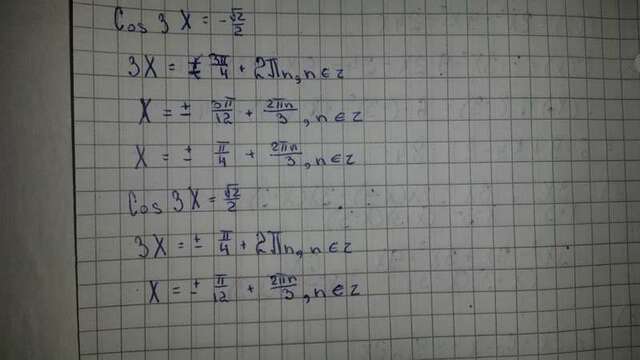 Cos 3X = -√2/2
3X = ± 3π/4 + 2πn, n ∈ z
X = ± 3π/12 + 2πn/3, n ∈ z
X = ± π/4 + 2πn/3, n ∈ z
Cos 3X = √2/2
3X = ± π/4 + 2πn, n ∈ z
X = ± π/12 + 2πn/3, n ∈ z